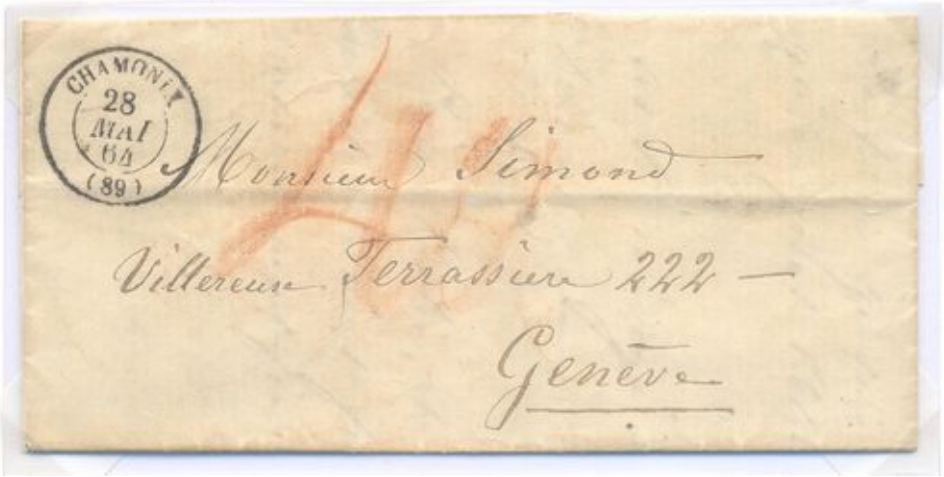 CHAMONIX
28
MAI
64
(89)
40
Monsieur Simond
Villereuse Terrassière 222 —
Genève